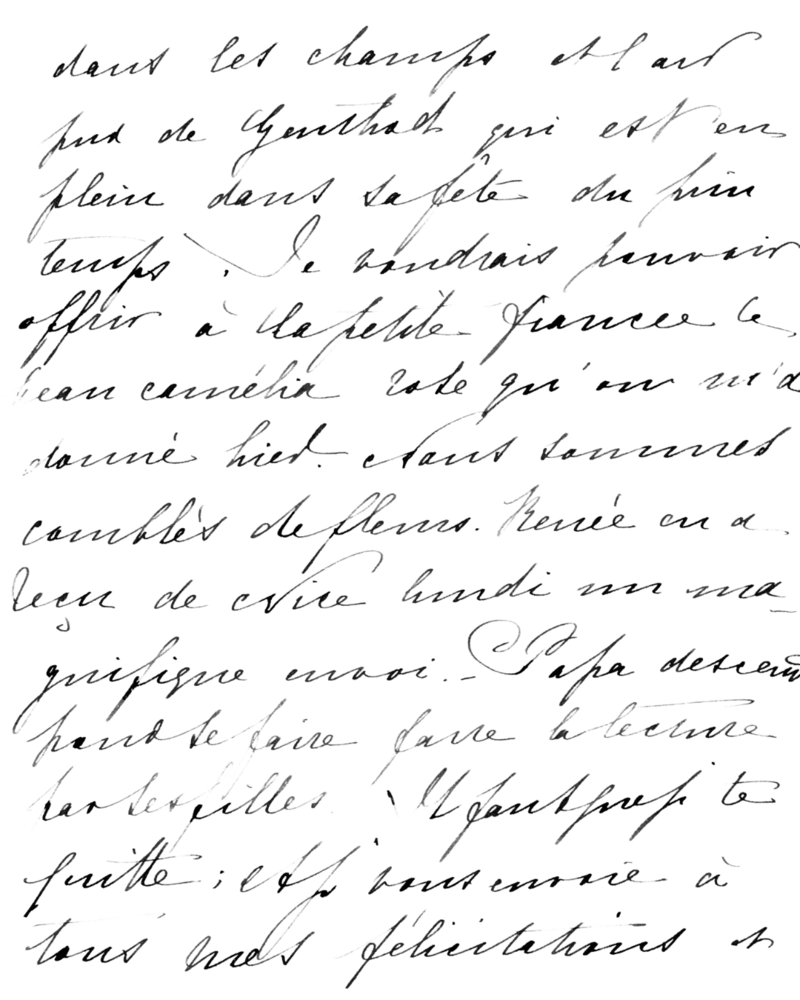 dans les champs et l'air
pur de Genthod qui est en
plein dans sa fête du prin
temps. Je voudrais pouvoir
offrir à la petite fiancée le
beau camélia rose qu'on m'a
donné hier. Nous sommes
comblés de fleurs. Renée en a
reçu de Nice lundi un ma-
gnifique envoi. - Papa descend
pour se faire faire la lecture
par ses filles. Il faut que je te
quitte ; et je vous envoie à
tous mes félicitations et